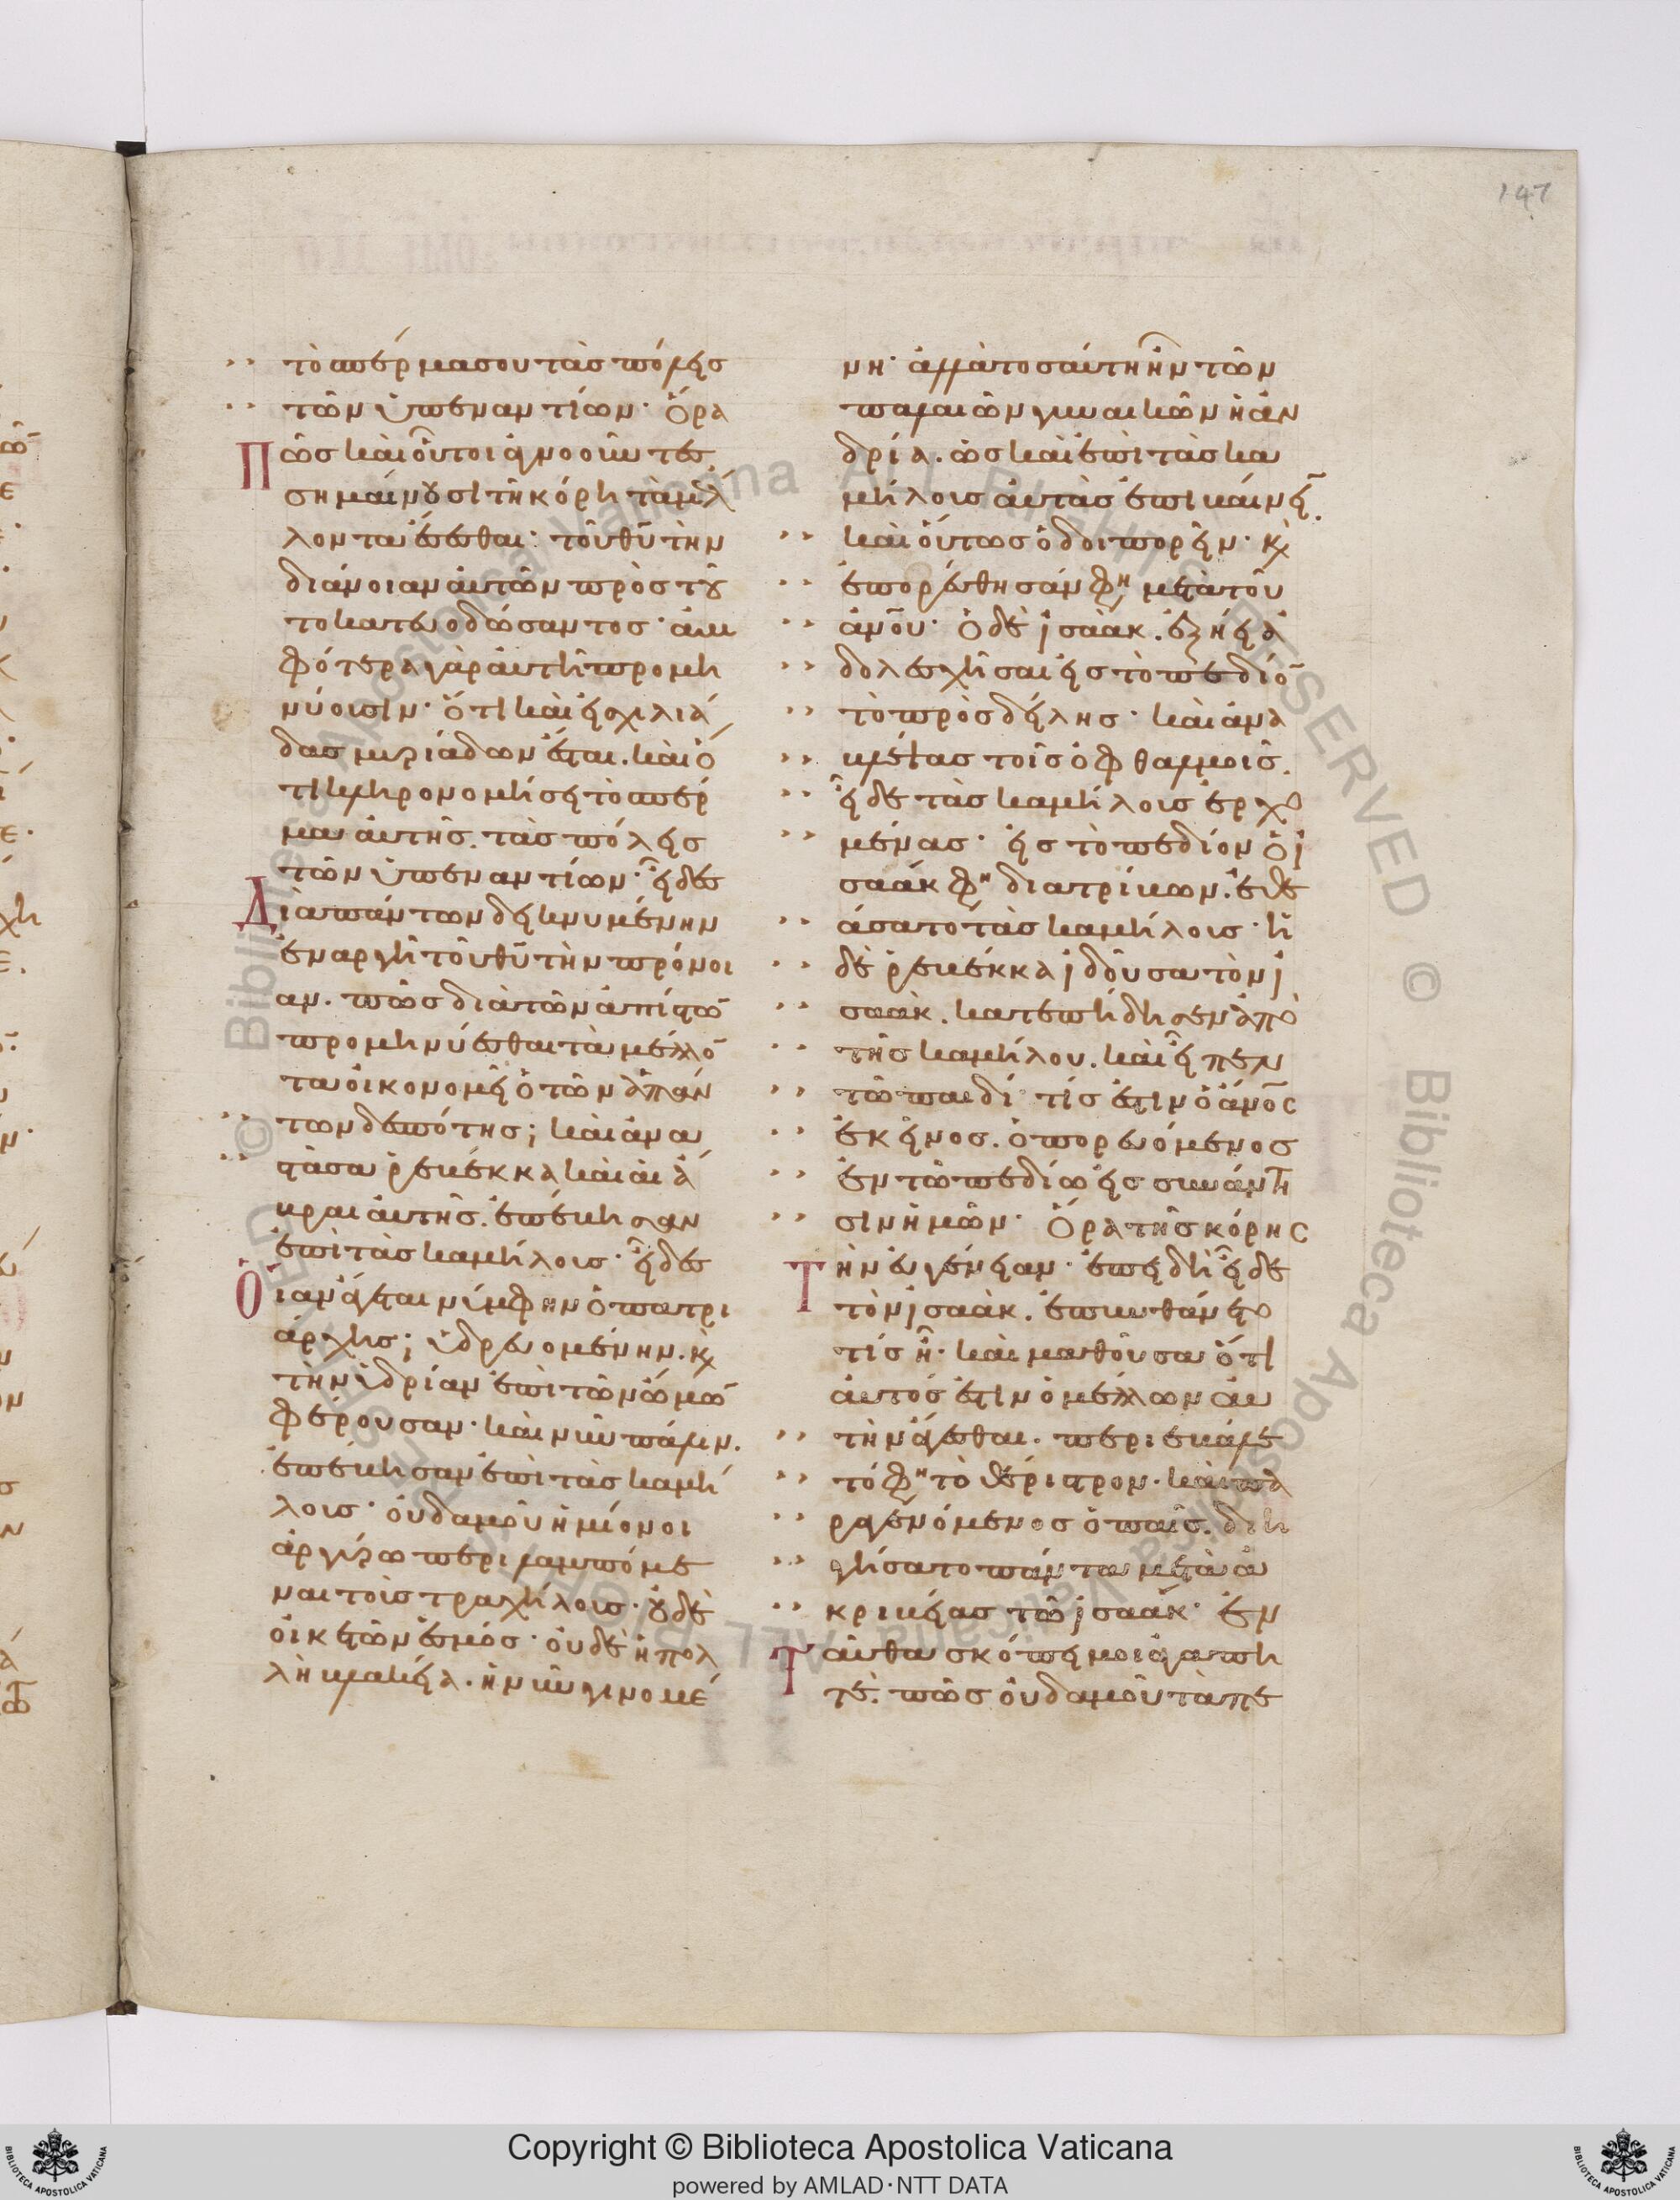 147
τὸ σπέρμα σου τὰς πόλεις
τῶν ὑπεναντίων· ὅρα
Πῶς καὶ οὗτοι ἀγνοοῦντες
σημαίνουσι τῆ κόρη τὰ μέλ
λοντα ἔσεσθαι· τοῦ θῡ τὴν
διάνοιαν αὐτῶν πρὸς τοῦ
το κατευοδώσαντος· ἀμ
φότερα γὰρ αὐτῆ προμη
νύουσιν· ὅτι καὶ εἰς χιλιά
δας μυριάδων ἔσται. καὶ ὅ
τι κληρονομήσει τὸ σπέρ
μα αὐτῆς. τὰς πόλεις
τῶν ὑπεναντίων· εἶδες
Διαπάντων δεικνυμένην
ἐναργῆ τοῦ θῡ τὴν πρόνοι
αν. πῶς διὰ τῶν ἀπίστω̅
προμηνύεσθαι τὰ μέλλο̅
τα οἰκονομεῖ ὁ τῶν ἁπάν
των δεσπότης; καὶ ἀνα
στᾶσα ῥεβέκκα καὶ αἱ ἅ
βραι αὐτῆς. ἐπέβησαν
ἐπὶ τὰς καμήλους· εἶδες
Οἵαν ἄγεται νύμφην ὁ πατρι
άρχης; ὑδρευομένην. κὶ
τὴν ὑδρίαν ἐπὶ τῶν ὤμω̅
φέρουσαν· καὶ νῦν πάλιν.
ἐπέβησαν ἐπὶ τὰς καμή
λους· οὐδαμοῦ ἡμίονοι
ἀργύρω περιλαμπόμε
ναι τοῖς τραχήλοις· οὐδὲ
οἰκετῶν ἑσμός· οὐδὲ ἡ πολ
λὴ βλακεία. ἡ νῦν γινομέ
νη· ἀλλὰ τοσαύτη ἦν τῶν
παλαιῶν γυναικῶν ἡ ἀν
δρία. ὡς καὶ ἐπὶ τὰς κα
μήλους αὐτὰς ἐπιβαίνει̅.
καὶ οὕτως ὁδοιπορεῖν· κὶ
ἐπορεύθησάν φη μετὰ τοῦ
ἀνο̅υ· ὁ δὲ ἰσαὰκ. ἐξήει ἀ
δολεσχῆσαι εἰς τὸ πεδίο̅
τὸ πρὸς δείλης· καὶ ἀνα
βλέψας τοῖς ὀφθαλμοῖς.
εἶδε τὰς καμήλους ἐρχο
μένας· εἰς τὸ πεδίον ὁ ἰ
σαάκ φη διατρίβων. ἐθε
άσατο τὰς καμήλους· ἡ
δὲ ῥεβέκκα ἰδοῦσα τὸν ἰ
σαὰκ. κατεπήδησεν ἀπὸ
τῆς καμήλου. καὶ εἶπεν
τῶ παιδί τίς ἐστιν ὁ ἄνο̅ς
ἐκεῖνος. ὁ πορευόμενος
ἐν τῶ πεδίω εἰς συνάντη
σιν ἡμῶν· ὅρα τῆς κόρης
Τὴν εὐγένειαν· ἐπειδὴ εἶδε
τὸν ἰσαὰκ. ἐπυνθάνετο
τίς ἦ· καὶ μαθοῦσα ὅτι
αὐτός ἐστιν ὁ μέλλων αὐ
τὴν ἄγεσθαι. περιεβάλε
τό φη τὸ θέριστρον· καὶ πα
ραγενόμενος ὁ παῖς. διη
γήσατο πάντα μετὰ ἀ
κριβείας τῶ ἰσαάκ· ἐν
Ταῦθα σκόπει μοι ἀγαπη
τέ. πῶς οὐδαμοῦ τὰ πε